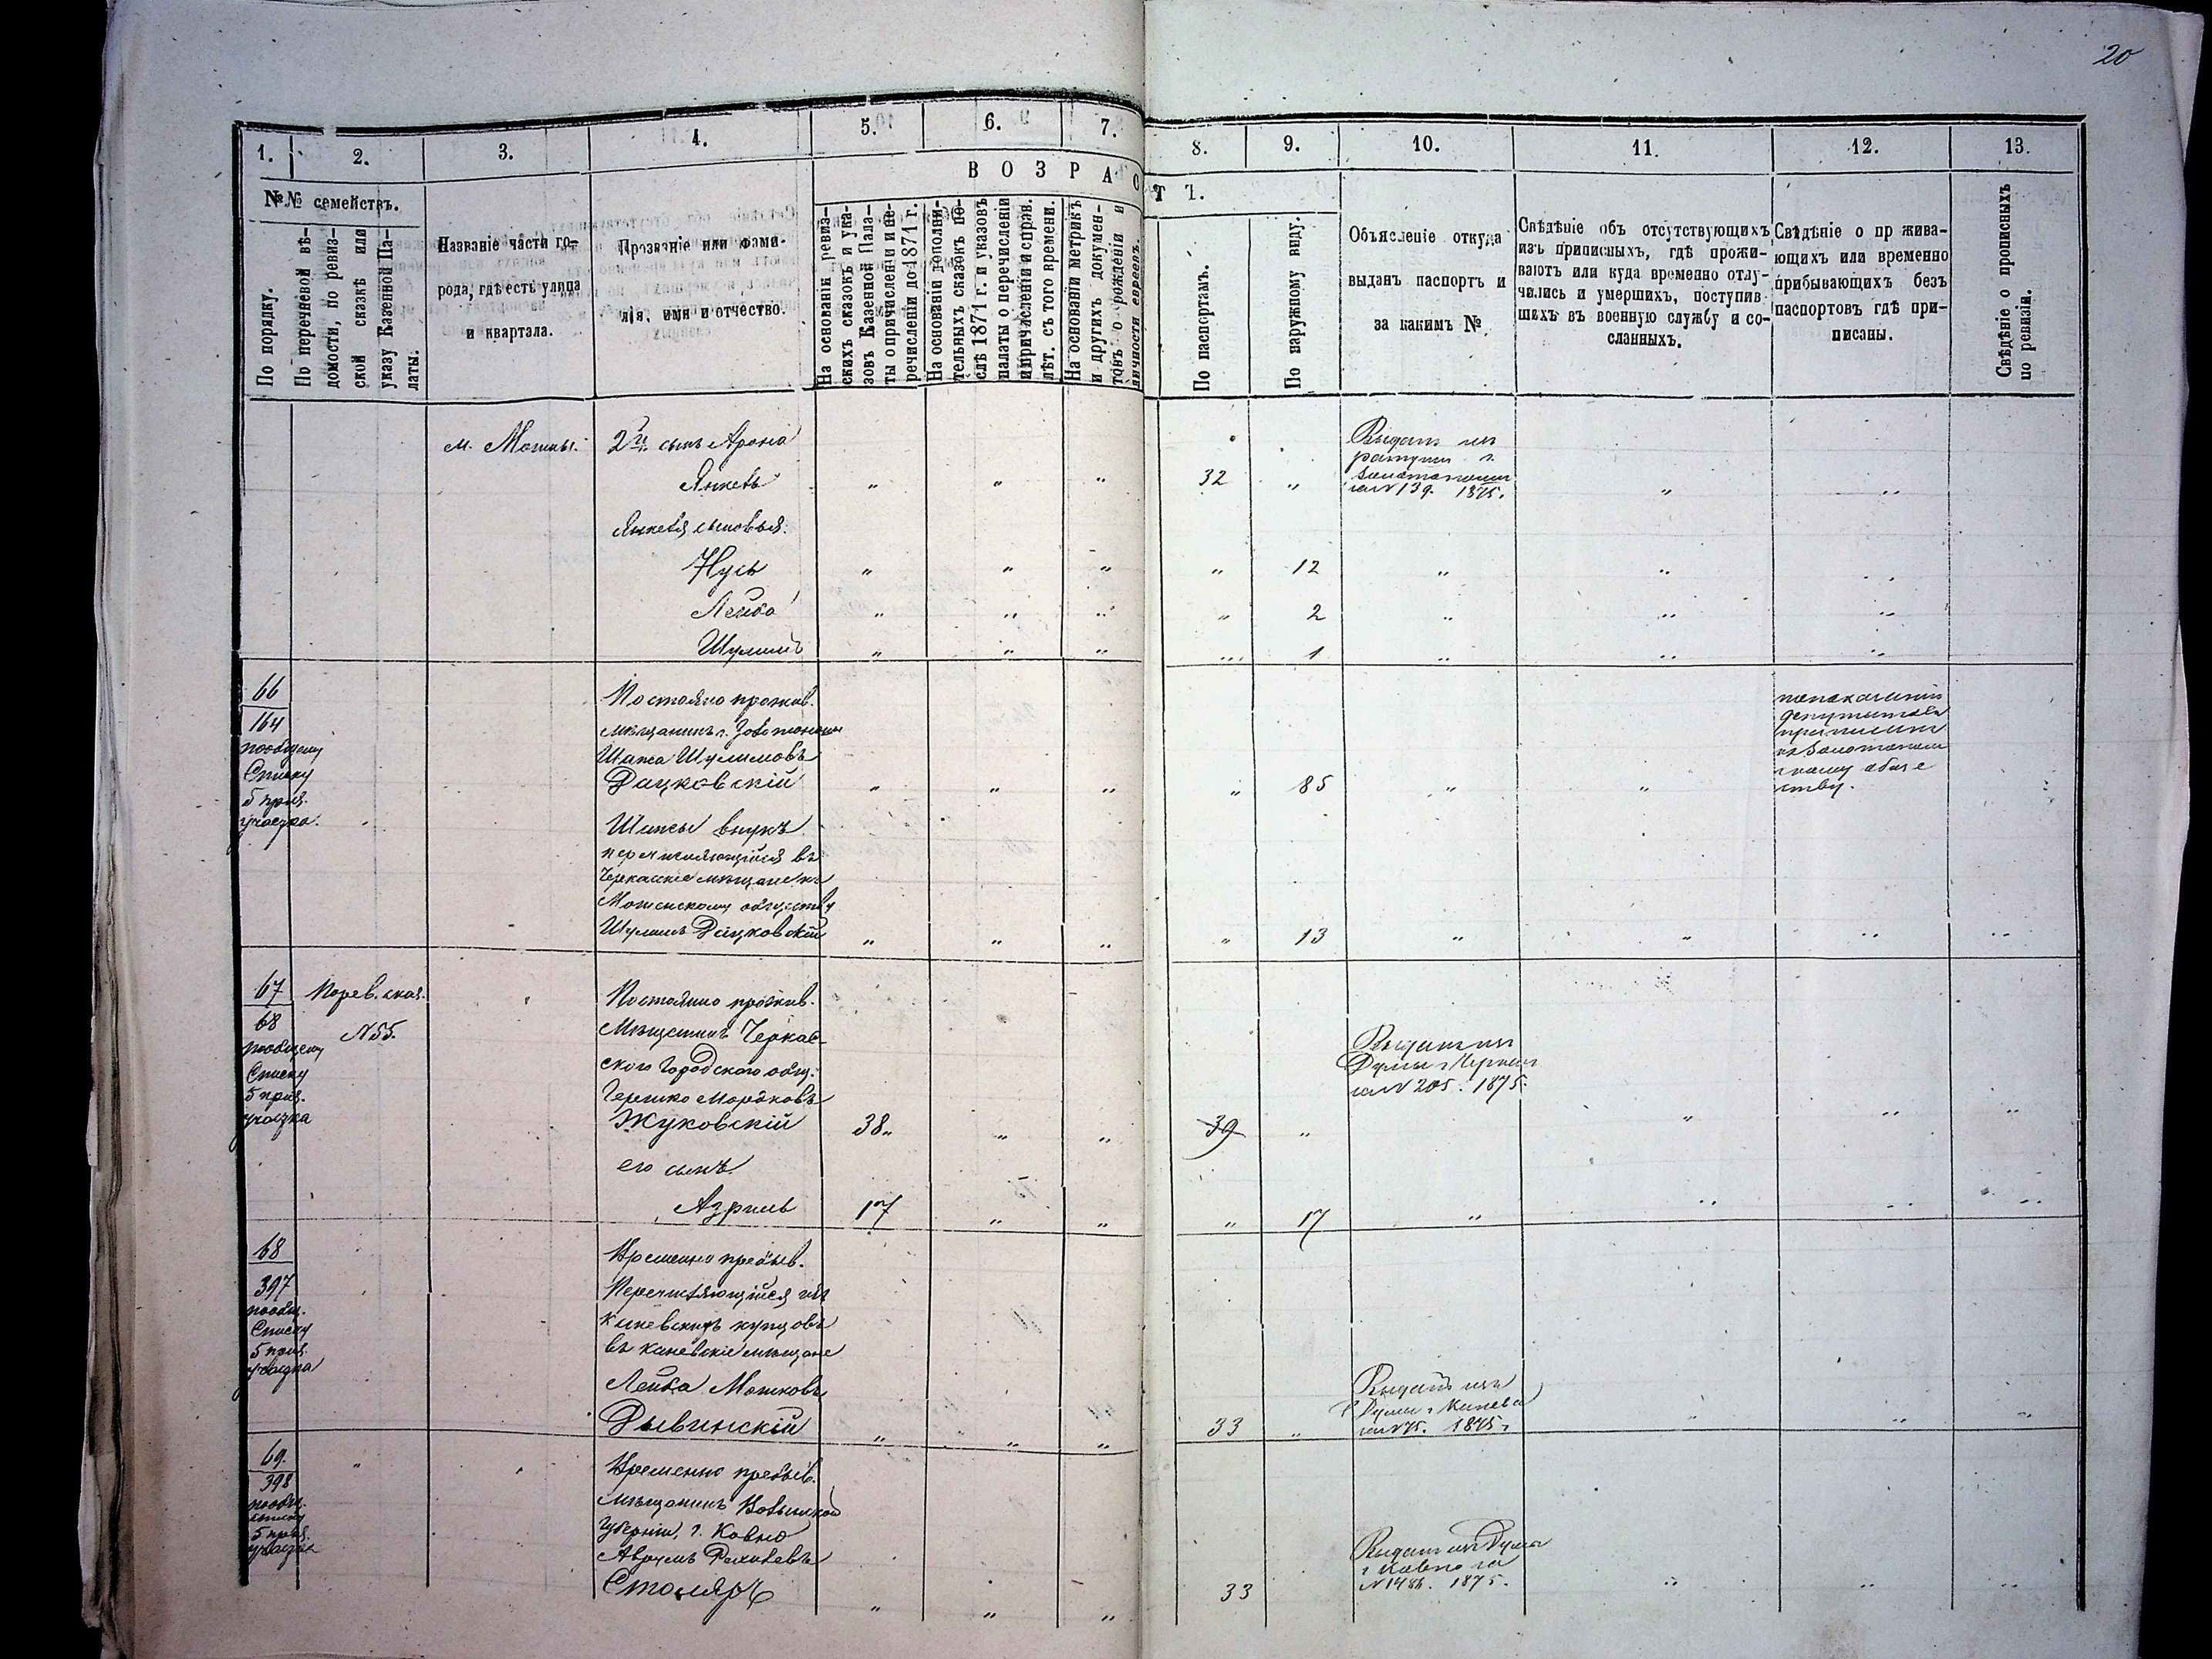 20
1.
2.
3.
4.
5.
6.
7.
8.
9.
10.
11.
12.
13.
№№ семействъ.
В О З Р А С Т Ъ.
По порядку.
По перечневой вѣ-
домости, по ревиз-
ской сказкѣ или
указу Казенной Па-
латы.
Названіе части го-
рода, гдѣ есть улица
и квартала.
Прозваніе или фами-
лія, имя и отчество.
На основаніи ревиз-
скихъ сказокъ и ука-
зовъ Казенной Пала-
ты о причислени и пе-
речислени до 1871 г.
На основаніи дополни-
тельныхъ сказокъ по-
слѣ 1871 г. и указовъ
палаты о перечислени
и причисленіи и справ.
лѣт. съ того времени.
На основаніи метрикъ
и другихъ докумен-
товъ о рожденіи и
личности евреевъ.
По паспортамъ.
По наружному виду.
Объясленіе откуда
выданъ паспортъ и
за какимъ №
Свѣдѣніе объ отсутствующихъ
изъ приписныхъ, гдѣ прожи-
ваютъ или куда временно отлу-
чились и умершихъ, поступив
шихъ въ военную службу и со-
сланныхъ.
Свѣдѣніе о пр жива-
ющихъ или временно
прибывающихъ безъ
паспортовъ гдѣ при-
писаны.
Свѣдѣніе о прописныхъ
по ревизіи.
м. Мошны. 2й сынъ Арона Выданъ изъ
ратуши г.
Янкель " " " 32 " Золотоноши " "
за № 139. 1875.
Янкеля сыновья:
Нусь " " " " 12 " " "
Лейба " " " " 2 " " "
Шулимъ " " " " 1 " " "
66
164
пообщему
Списку
5 приз.
участка.
Постоянно прожив.
мѣщанинъ г. Золотоноши
Шика Шулимовъ
Дацковскій " " " " 85 " "
показанію
депутатовъ
приписанъ
къ Золотонош
скому обще
ству.
внукъ
перечисляющійся въ
Черкасскіе мѣщане къ
Мошенскому обществу
Шулимъ Дацковскій " " " " 13 " " " "
67
68
пообщему
Списку
5 приз.
участка
№ 55.
Постоянно прожив.
Мѣщанинъ Черкас-
скаго Городского общ.
Гершко Мордковъ
Жуковскій 38 " " " 39 " " " "
Выданъ изъ
Думы г. Черкас
за № 205. 1875.
его сынъ
Азриль 17 " " " 17 " " " "
68
397
пообщ.
Списку
5 приз.
участка
Временно пребыв.
Перечисляющійся изъ
каневскихъ купцовъ
въ каневскіе мѣщане
Лейба Мошковъ
Дывинскій " " " 33 " " " "
Выданъ изъ
Думы г. Канева
за № 75. 1875 г.
69.
398
пообщ.
списку
5 приз.
участка
Временно пребыв.
мѣщанинъ
Губерніи, г. Ковно
Столяръ " " " 33 " " "
Выданъ изъ Думы
г. Ковно за
№ 1486. 1875.